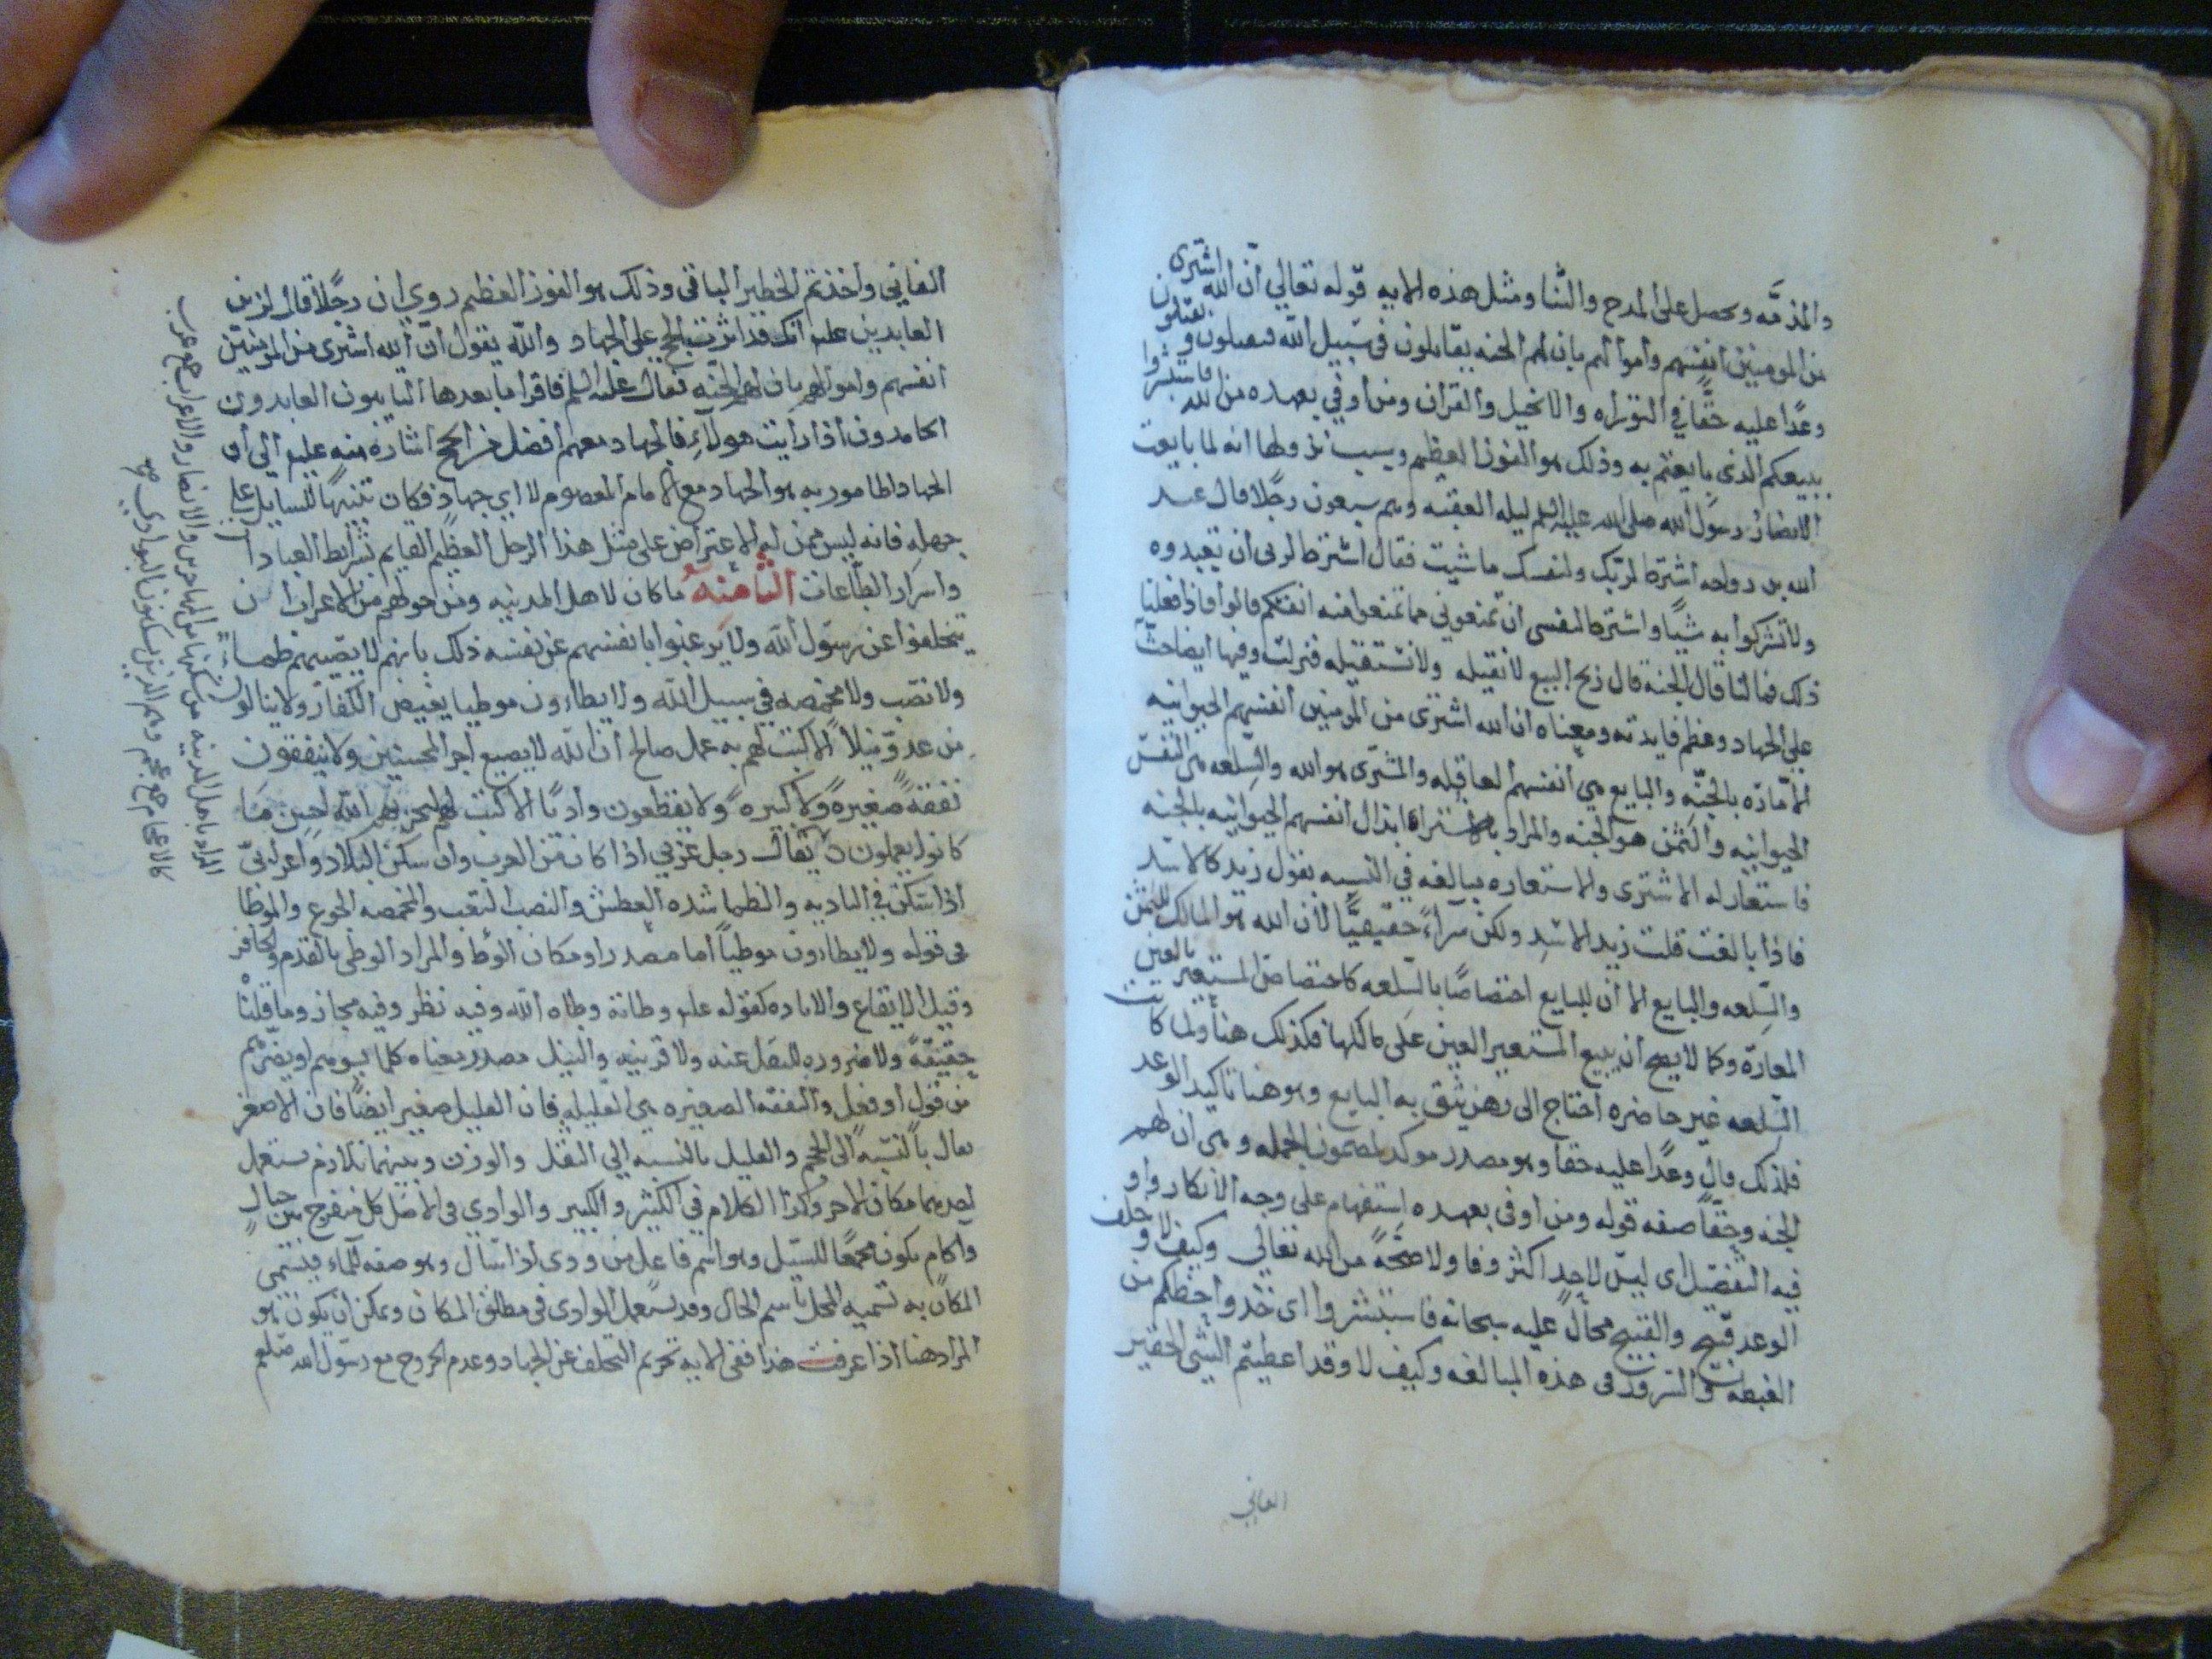 والمذمه ويحصل على المدح والثنا ومثل هذه الايه قوله تعالي ان الله اشترى
من المومنين انفسهم واموالهم بان لهم الجنه يقاتلون في سبيل الله فيقتلون ويقتلون
وعدا عليه حقا في التوراه والانجيل والقران ومن أوفي بعهده من الله فاستبشروا
ببيعكم الذى بايعتم به وذلك هو الفوز العظيم وسبب نزولها انه لما بايعت
الانصار رسول الله صلى الله عليه السلم ليله العقبه وهم سبعون رجلا قال عبد
الله بن رواحه اشترط لربك ولنفسك ما شيت فقال اشترط لربى أن تعبدوه
ولا تشركوا به شيا واشترط لنفسى أن تمنعونى مما تمنعوا منه انفسكم قالوا فاذا فعلنا
ذلك فما لنا قال الجنة قال ربح البيع لا نقيله ولا نستقيله فنزلت وفيها أيضا حث
على الجهاد وعظم فايدته ومعناه أن الله اشترى من المومنين أنفسهم الحيوانيه
الامّاره بالجنّه والبايع هي أنفسهم العاقله والمشترى هو الله والسلعه هى النفس
الحيوانيه والثمن هو الجنه والمراد بالاشتراء ابدال انفسهم الحيوانيه بالجنه
فاستعار له الاشترى والاستعاره مبالغه في التشبيه تقول زيد كالاسد
فاذا بالغت قلت زيد الاسد ولكن شراءً حقيقيًّا لأن الله هو المالك للثمن
والسلعه والبايع الا أن للبايع اختصاصًا بالسلعه كاختصاص المستعير بالعين
المعارة وكما لا يصح أن يبيع المستعير العين على مالكها فكذلك هنا ولما كانت
السلعه غير حاضره احتاج الى رهن يثق به البايع وهو هنا تاكيد الوعد
فلذلك قال وعدًا عليه حقا وهو مصدر موكد لمضمون الجمله وهى ان لهم
الجنه وحقًا صفه قوله ومن أوفى بعهده استفهام على وجه الأنكار واو
فيه التفضيل اى ليس لاحد اكثر وفا ولا صحّةً من الله تعالي وكيف لا وخلف
الوعد قبيح والقبيح محال عليه سبحانه فاستبشروا اى خذوا حظكم من
الغبطه والسرور في هذه المبالغه وكيف لا وقد اعطيتم الشي الحقير
الفاني
الفاني وأخذتم الخطير الباقي وذلك هو الفوز العظيم روي ان رجلًا قال لزين
العابدين عليه انك قد اثرت الحج على الجهاد والله يقول أن الله اشترى من المومنين
انفسهم واموالهم بان لهم الجنه فقال عليه السلم فاقرا ما بعدها التايبون العابدون
الحامدون اذا رأيت هولاء فالجهاد معهم أفضل من الحج اشارة منه عليه الى أن
الجهاد المامور به هو الجهاد مع الامام المعصوم لا اي جهاد فكان تنبيها للسايل على
جهله فانه ليس ممن له الاعتراض على مثل هذا الرجل العظيم القايم بشرايط العبادات
واسرار الطاعات الثامنه ما كان لاهل المدينه ومن حولهم من الاعراب ان
يتخلفوا عن رسول الله ولا يرغبوا بانفسهم عن نفسه ذلك بانهم لا يصيبهم ظماء
ولا نصب ولا مخمصه في سبيل الله ولا يطاون موطيا يغيض الكفار ولا ينالون
من عدو نيلاً الا كتب لهم به عمل صالح أن الله لا يضيع أجر المحسنين ولا ينفقون
نفقة صغيرةً ولا كبيرهً ولا يقطعون واديًا الا كتب لهم ليجزيهم الله احسن ما
كانوا يعملون يقال رجل عربي اذا كان من العرب وان سكن البلاد واعرابيّ
اذا سكن في الباديه والظما شده العطش والنصب التعب والمخمصه الجوع والموطا
في قوله ولا يطاون موطياً أما مصدر أو مكان الوطا والمراد الوطى بالقدم والحافر
وقيل الايقاع والاباده كقوله عليه وطاته وطاه الله وفيه نظر وفيه مجاز وما قلنا
حقيقةً ولا ضروره للنقل عنه ولا قرينه والنيل مصدر معناه كلما يسوهم او يضرهم
من قول أو فعل والنفقه الصغيره هي القليله فان القليل صغير ايضاً فان الاصغر
يقال بالنسبة الى الحجم والقليل بالنسبه الي الثقل والوزن وبينهما تلازم يستعمل
احدهما مكان الاخر وكذا الكلام في الكثير والكبير والوادي في الاصل كل منفرج بين جبال
وآكام يكون مجمعًا للسيل وهو اسم فاعل من ودى اذا سال وهو صفه للماء فيسمى
المكان به تسميه المحل باسم الحال وقد يستعمل الوادى في مطلق المكان ويمكن أن يكون هو
المراد هنا اذا عرفت هذا ففى الايه تحريم التخلف عن الجهاد وعدم الخروج مع رسول الله صلعم
المراد باهل المدينه من سكنها من المهاجرين والانصار والاعراب جمع عرب
كالاعجام جمع عجم وهم الذين يسكنون البوادي